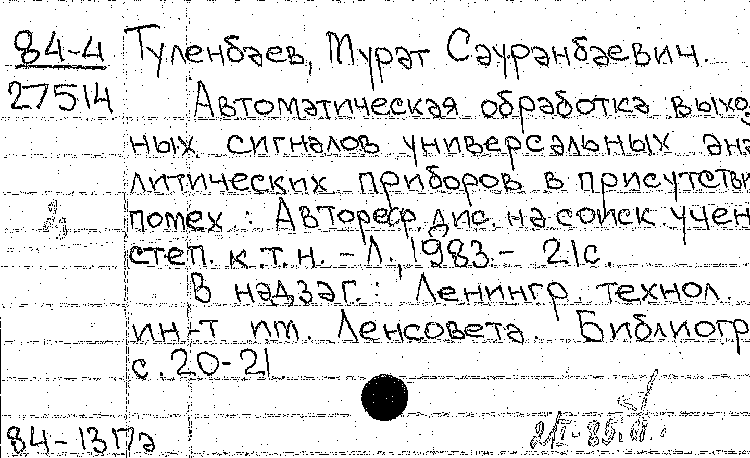 84-4 Туленбаев, Мурат Сауранбаевич.
27514 Автоматическая обработка выход
ных сигналов универсальных ана
литических приборов в присутстви
помех : Автореф. дис. на соиск. учен
степ. к.т.н. - Л., 1983. - 21с.
В надзаг.: Ленингр. технол
ин-т им. Ленсовета. Библиогр
с. 20-21
84-1317а